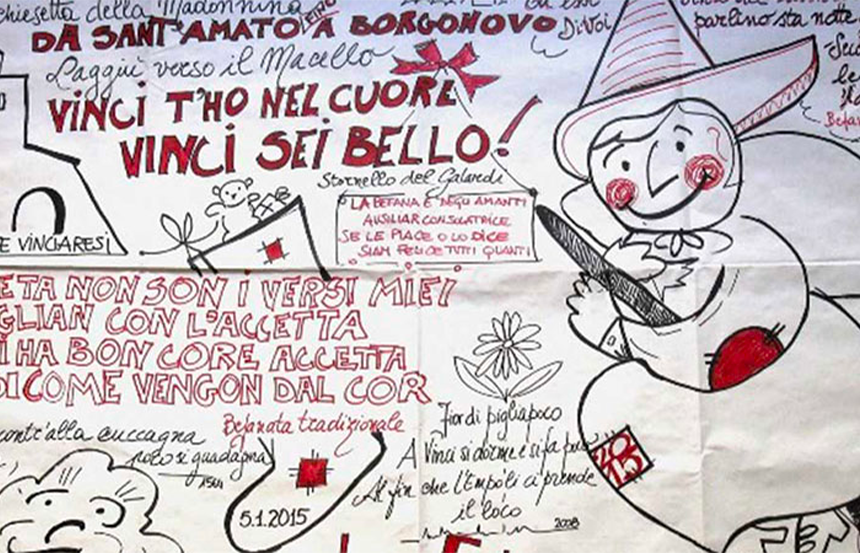 chiesetta della Madonnina
FINO
DA SANT'AMATO A BORGONOVO
Di Voi
parlino sta notte
Laggiù verso il Macello
VINCI T'HO NEL CUORE
VINCI SEI BELLO!
Befana
Stornello del Galardi
LA BEFANA È DEGLI AMANTI
AUSILIAR CONSOLATRICE
SE LE PIACE O LO DICE
SIAM FELICE TUTTI QUANTI
E VINCIARESI
ETA NON SON I VERSI MIEI
GLIAN CON L'ACCETTA
I HA BON CORE ACCETTA
DI COME VENGON DAL COR
Befanata tradizionale
cont'alla cuccagna
poco si guadagna
5.1.2015
Fior di pigliapoco
A Vinci si dorme e si fa poco
Al fin che l'Empoli ci prende
il loco
2008
2015